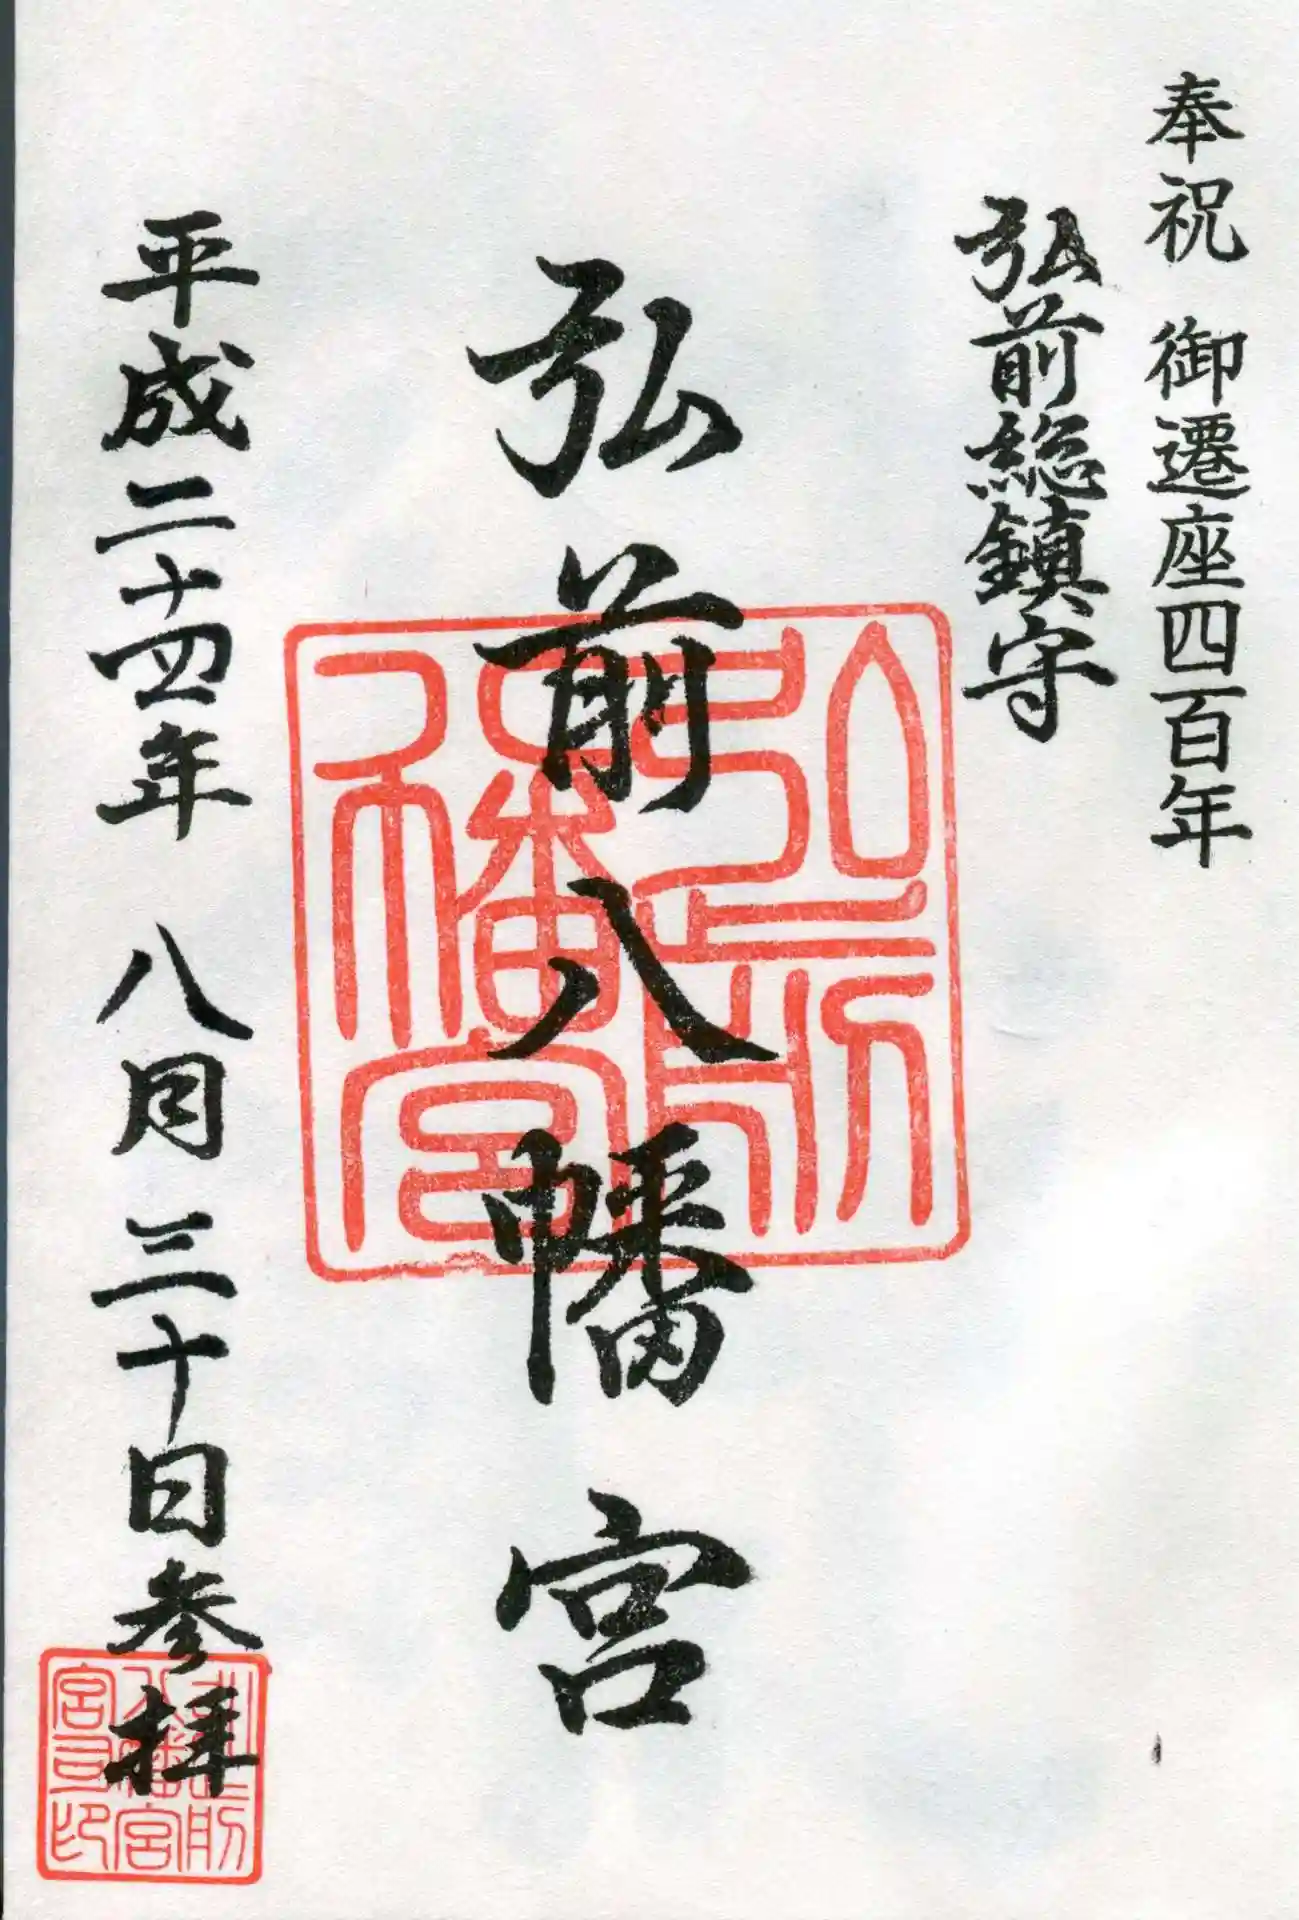 奉祝 御遷座四百年
弘前総鎮守
弘前八幡宮
平成二十四年 八月三十日参拝
弘前
八幡宮
弘前
八幡宮
宮司印